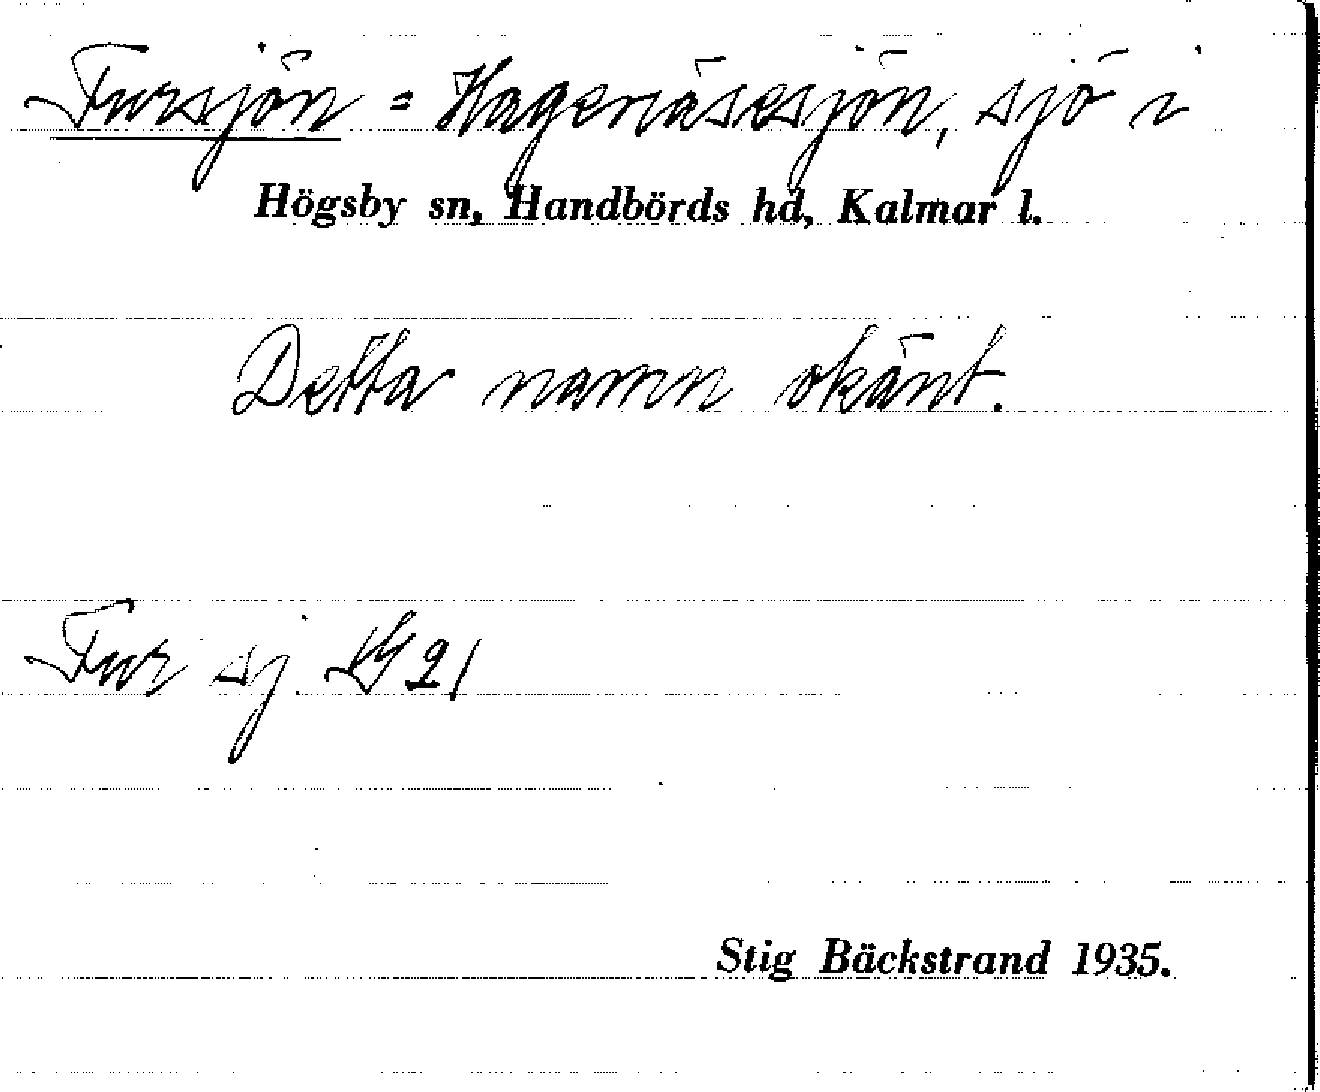 Fursjön = Hagenäsesjön, sjö i
Högsby sn, Handbörds hd, Kalmar l.
Detta namn okänt.
Fur sj. 21
Stig Bäckstrand 1935.